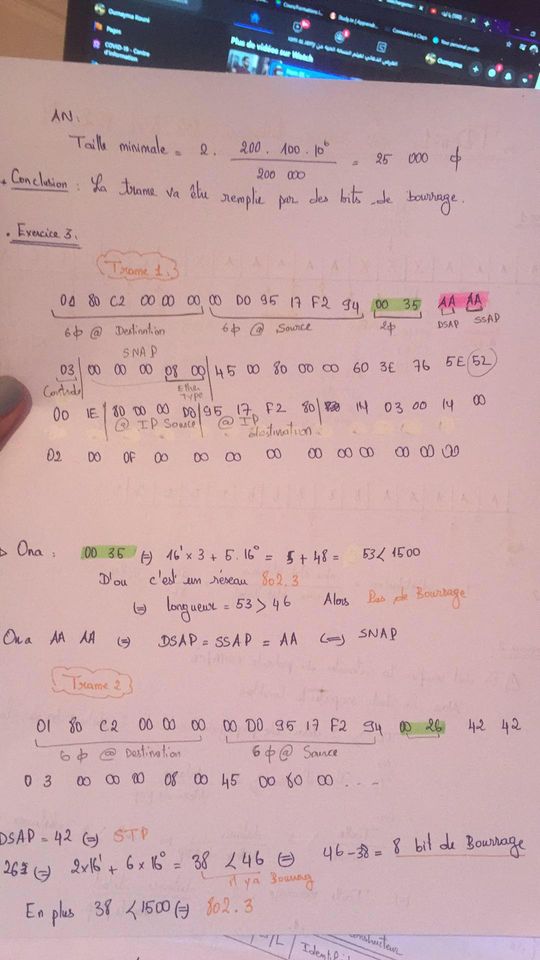 Oumayma Rouni
Pages
COVID-19 - Centre
d'information
Plus de vidéos sur Watch
Your personal profile
Oumayma
AN:
Taille minimale = 2. 200 . 100 . 10⁶ / 200 000 = 25 000 ϕ
Conclusion : La trame va être remplie par des bits de bourrage.
Exercice 3.
Trame 1:
01 80 C2 00 00 00 00 D0 95 17 F2 94 00 35 AA AA
6ϕ @ Destination 6ϕ @ Source 2ϕ DSAP SSAP
SNAP
03 00 00 00 08 00 45 00 80 00 00 60 3E 76 5E 52
Controle Ether Type
00 1E 80 00 00 D0 95 17 F2 80 14 03 00 14 00
@ IP Source @ IP destination
02 00 0F 00 00 00 00 00 00 00 00 00 00
Ona : 00 35 (=) 16¹ x 3 + 5. 16⁰ = 5 + 48 = 53 < 1500
D'ou c'est un réseau 802.3
(=) longueur = 53 > 46 Alors Pas de Bourrage
Ona AA AA (=) DSAP = SSAP = AA (=) SNAP
Trame 2
01 80 C2 00 00 00 00 D0 95 17 F2 94 00 26 42 42
6ϕ @ Destination 6ϕ @ Source
03 00 00 00 08 00 45 00 80 00 ....
DSAP = 42 (=) STP
26 (=) 2x16¹ + 6 x 16⁰ = 38 < 46 (=) 46 - 38 = 8 bit de Bourrage
il ya Bourrag
En plus 38 < 1500 (=) 802.3
constructeur
Identif